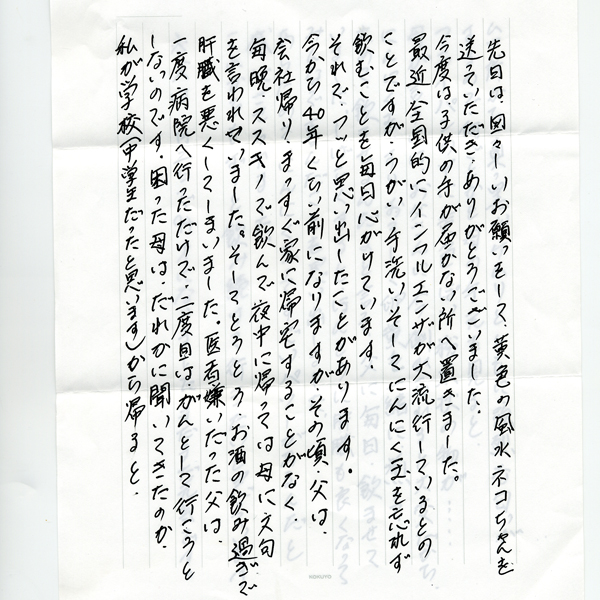 先日は、図々しいお願いをして、黄色の風水ネコちゃんを
送っていただき、ありがとうございました。
今度は、子供の手が届かない所へ置きました。
最近、全国的にインフルエンザが大流行しているとの
ことですが、うがい、手洗い、そしてにんにく玉を忘れず
飲むことを毎日心がけています。
それで、フッと思い出したことがあります。
今から40年くらい前になりますが、その頃、父は、
会社帰り、まっすぐ家に帰宅することがなく、
毎晩、ススキノで飲んで、夜中に帰っては母に文句
を言われていました。そしてとうとう、お酒の飲み過ぎで
肝臓を悪くしてしまいました。医者嫌いだった父は、
一度病院へ行っただけで、二度目は、がんとして行こうと
しないのです。困った母は、だれかに聞いてきたのか、
私が学校(中学生だったと思います)から帰ると、
KOKUYO